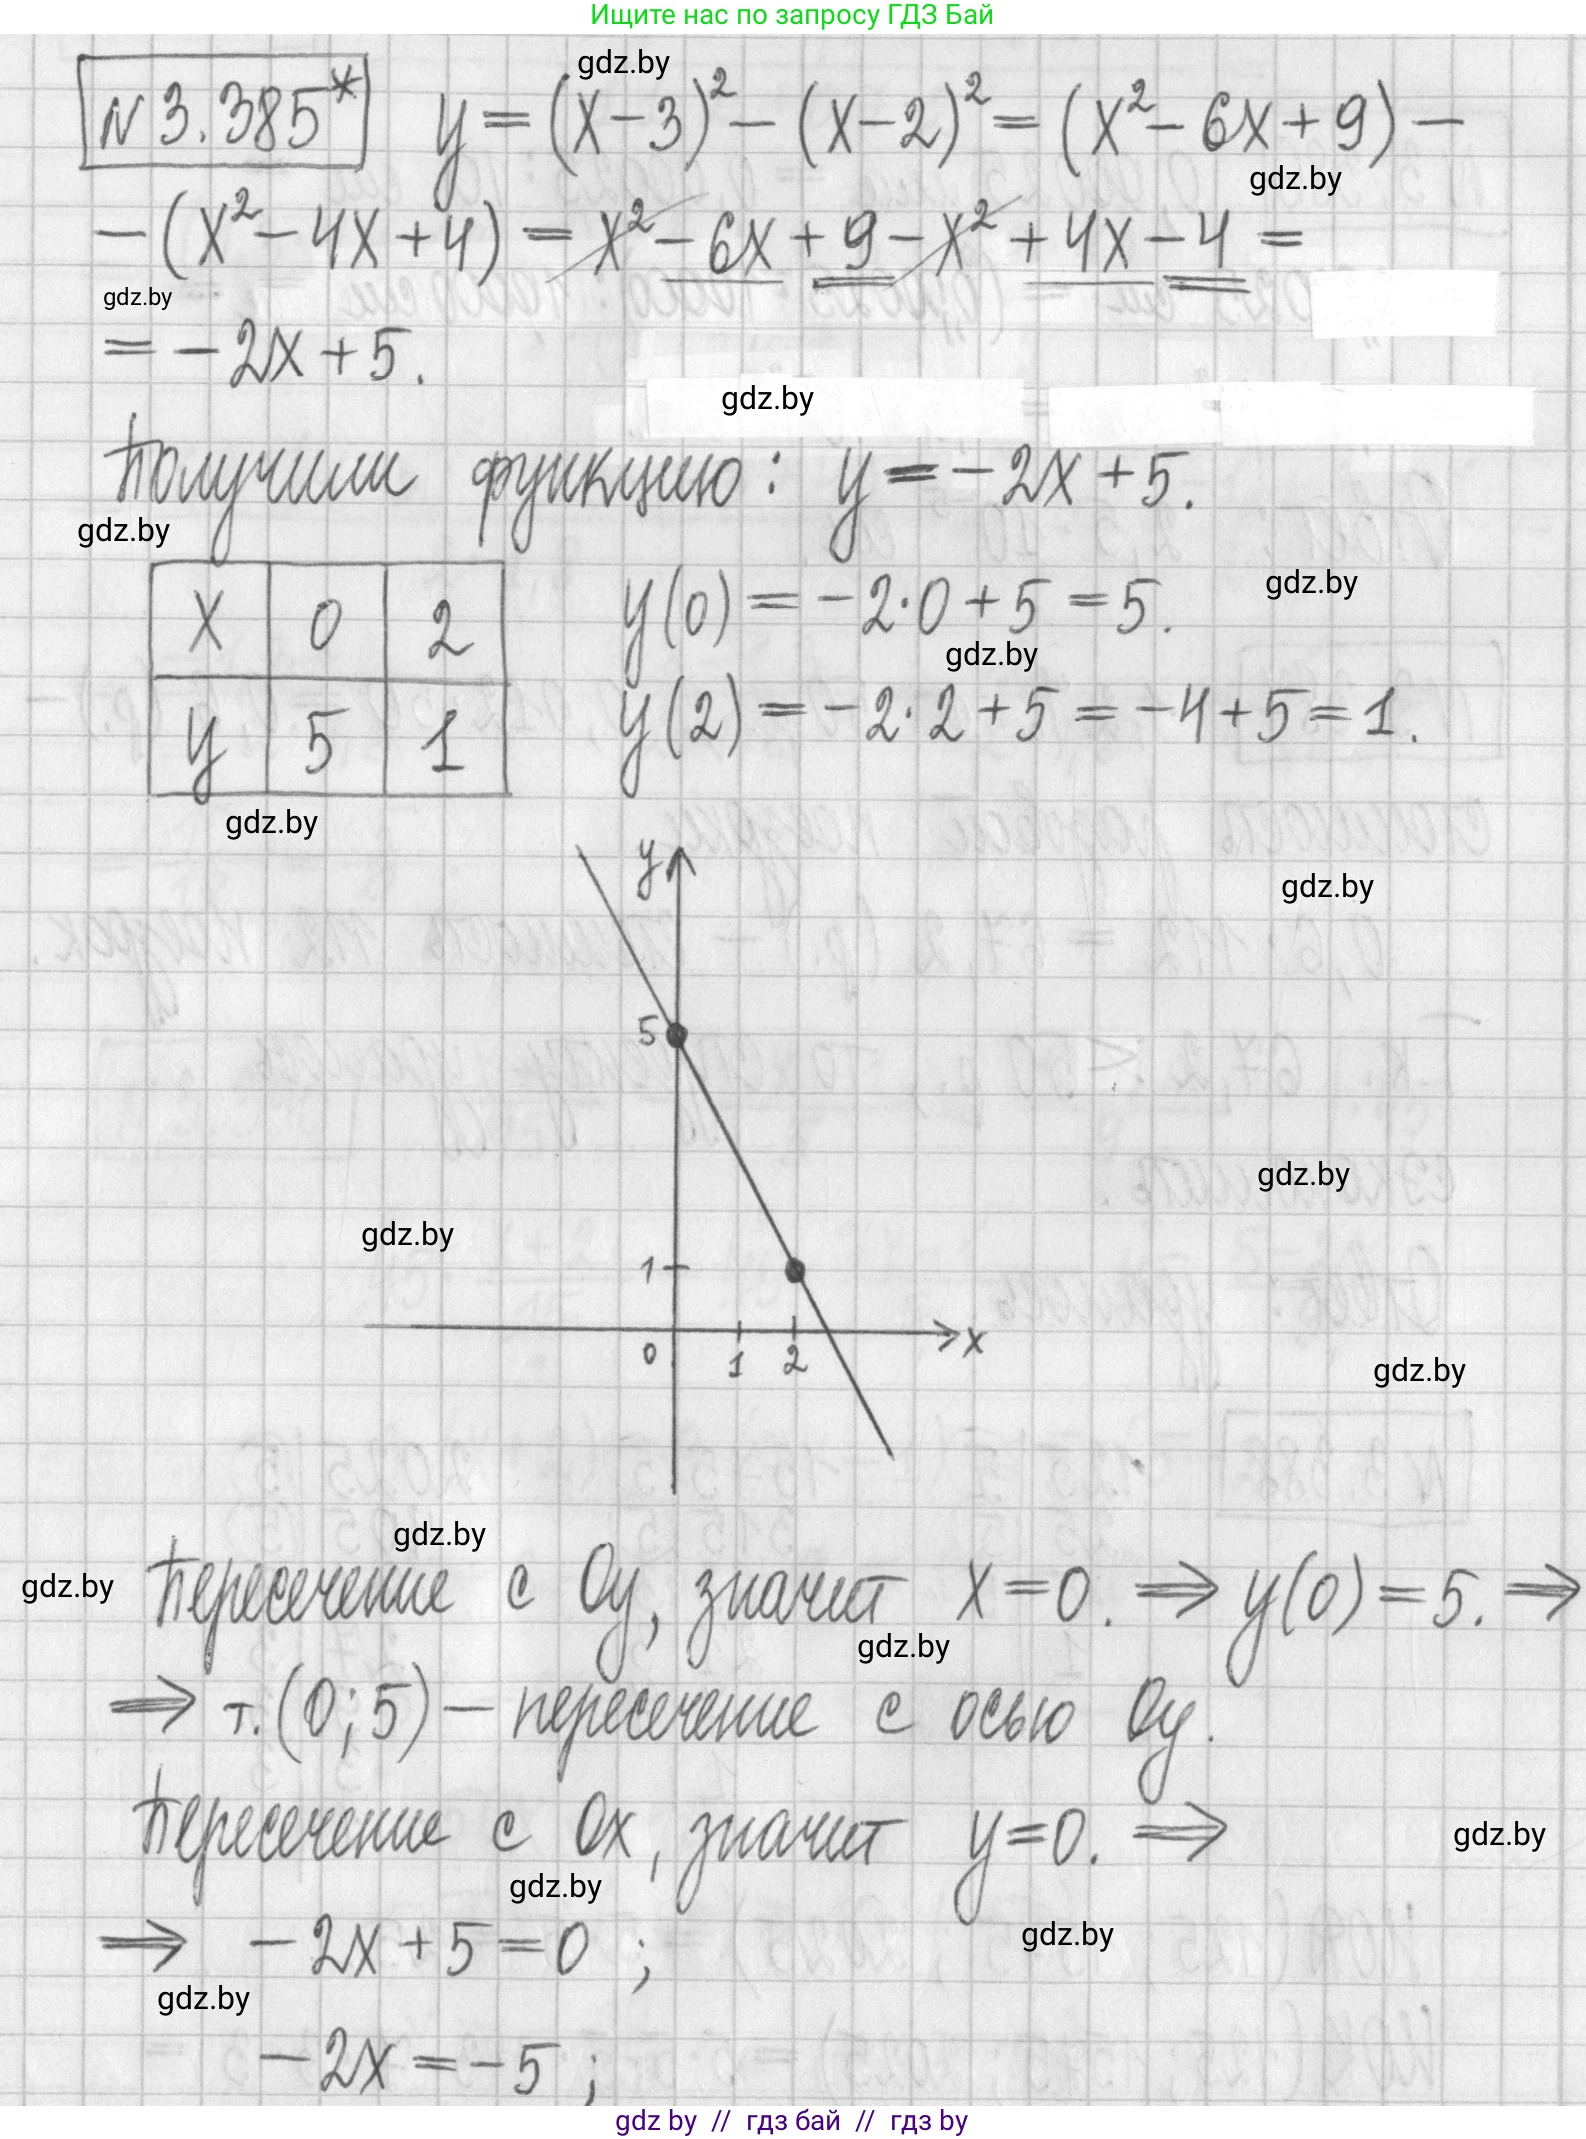 Ищите нас по запросу ГДЗ Бай
gdz.by
N 3.385* y = (x - 3)² - (x - 2)² = (x² - 6x + 9) -
gdz.by
- (x² - 4x + 4) = x² - 6x + 9 - x² + 4x - 4 =
gdz.by
= - 2x + 5.
gdz.by
Получили функцию: y = - 2x + 5.
gdz.by
x 0 2
y(0) = - 2·0 + 5 = 5.
gdz.by
gdz.by
y 5 1
y(2) = - 2·2 + 5 = - 4 + 5 = 1.
gdz.by
y
gdz.by
5
gdz.by
gdz.by
1
0 1 2 x
gdz.by
gdz.by
gdz.by
Пересечение с Oy, значит x = 0. ⇒ y(0) = 5. ⇒
gdz.by
⇒ т. (0; 5) — пересечение с осью Oy.
Пересечение с Ox, значит y = 0. ⇒
gdz.by
gdz.by
⇒ - 2x + 5 = 0 ;
gdz.by
gdz.by
- 2x = - 5 ;
gdz by // гдз бай // gdz by